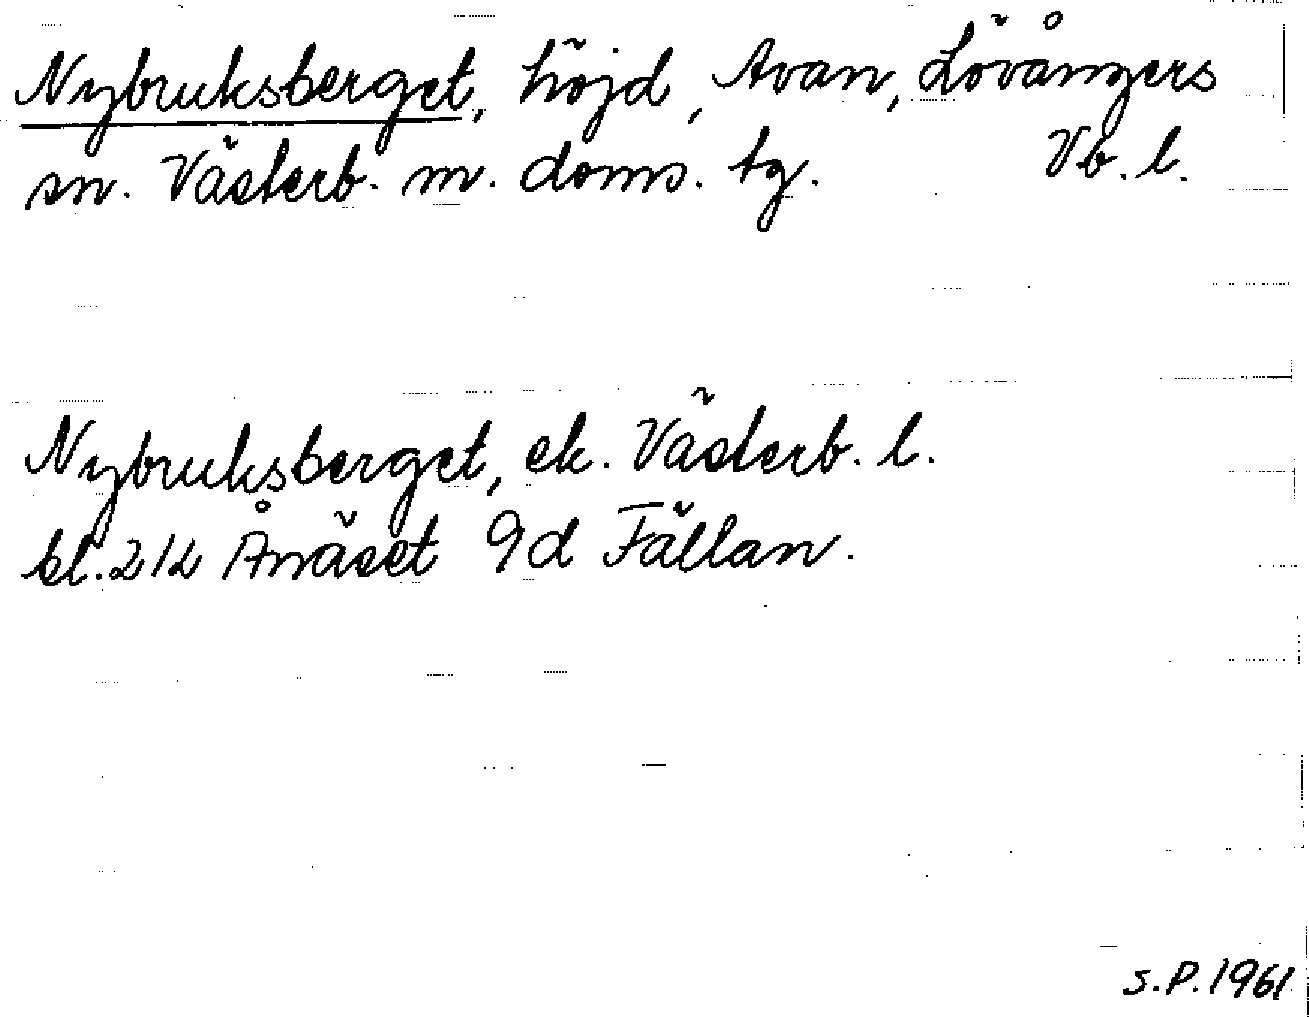 Nybruksberget, höjd, Avan, Lövångers
sn. Västerb. m. doms. tg. Vb. l.
Nybruksberget, ek. Västerb. l.
bl. 21L Ånäset 9d Fällan.
S.P. 1961